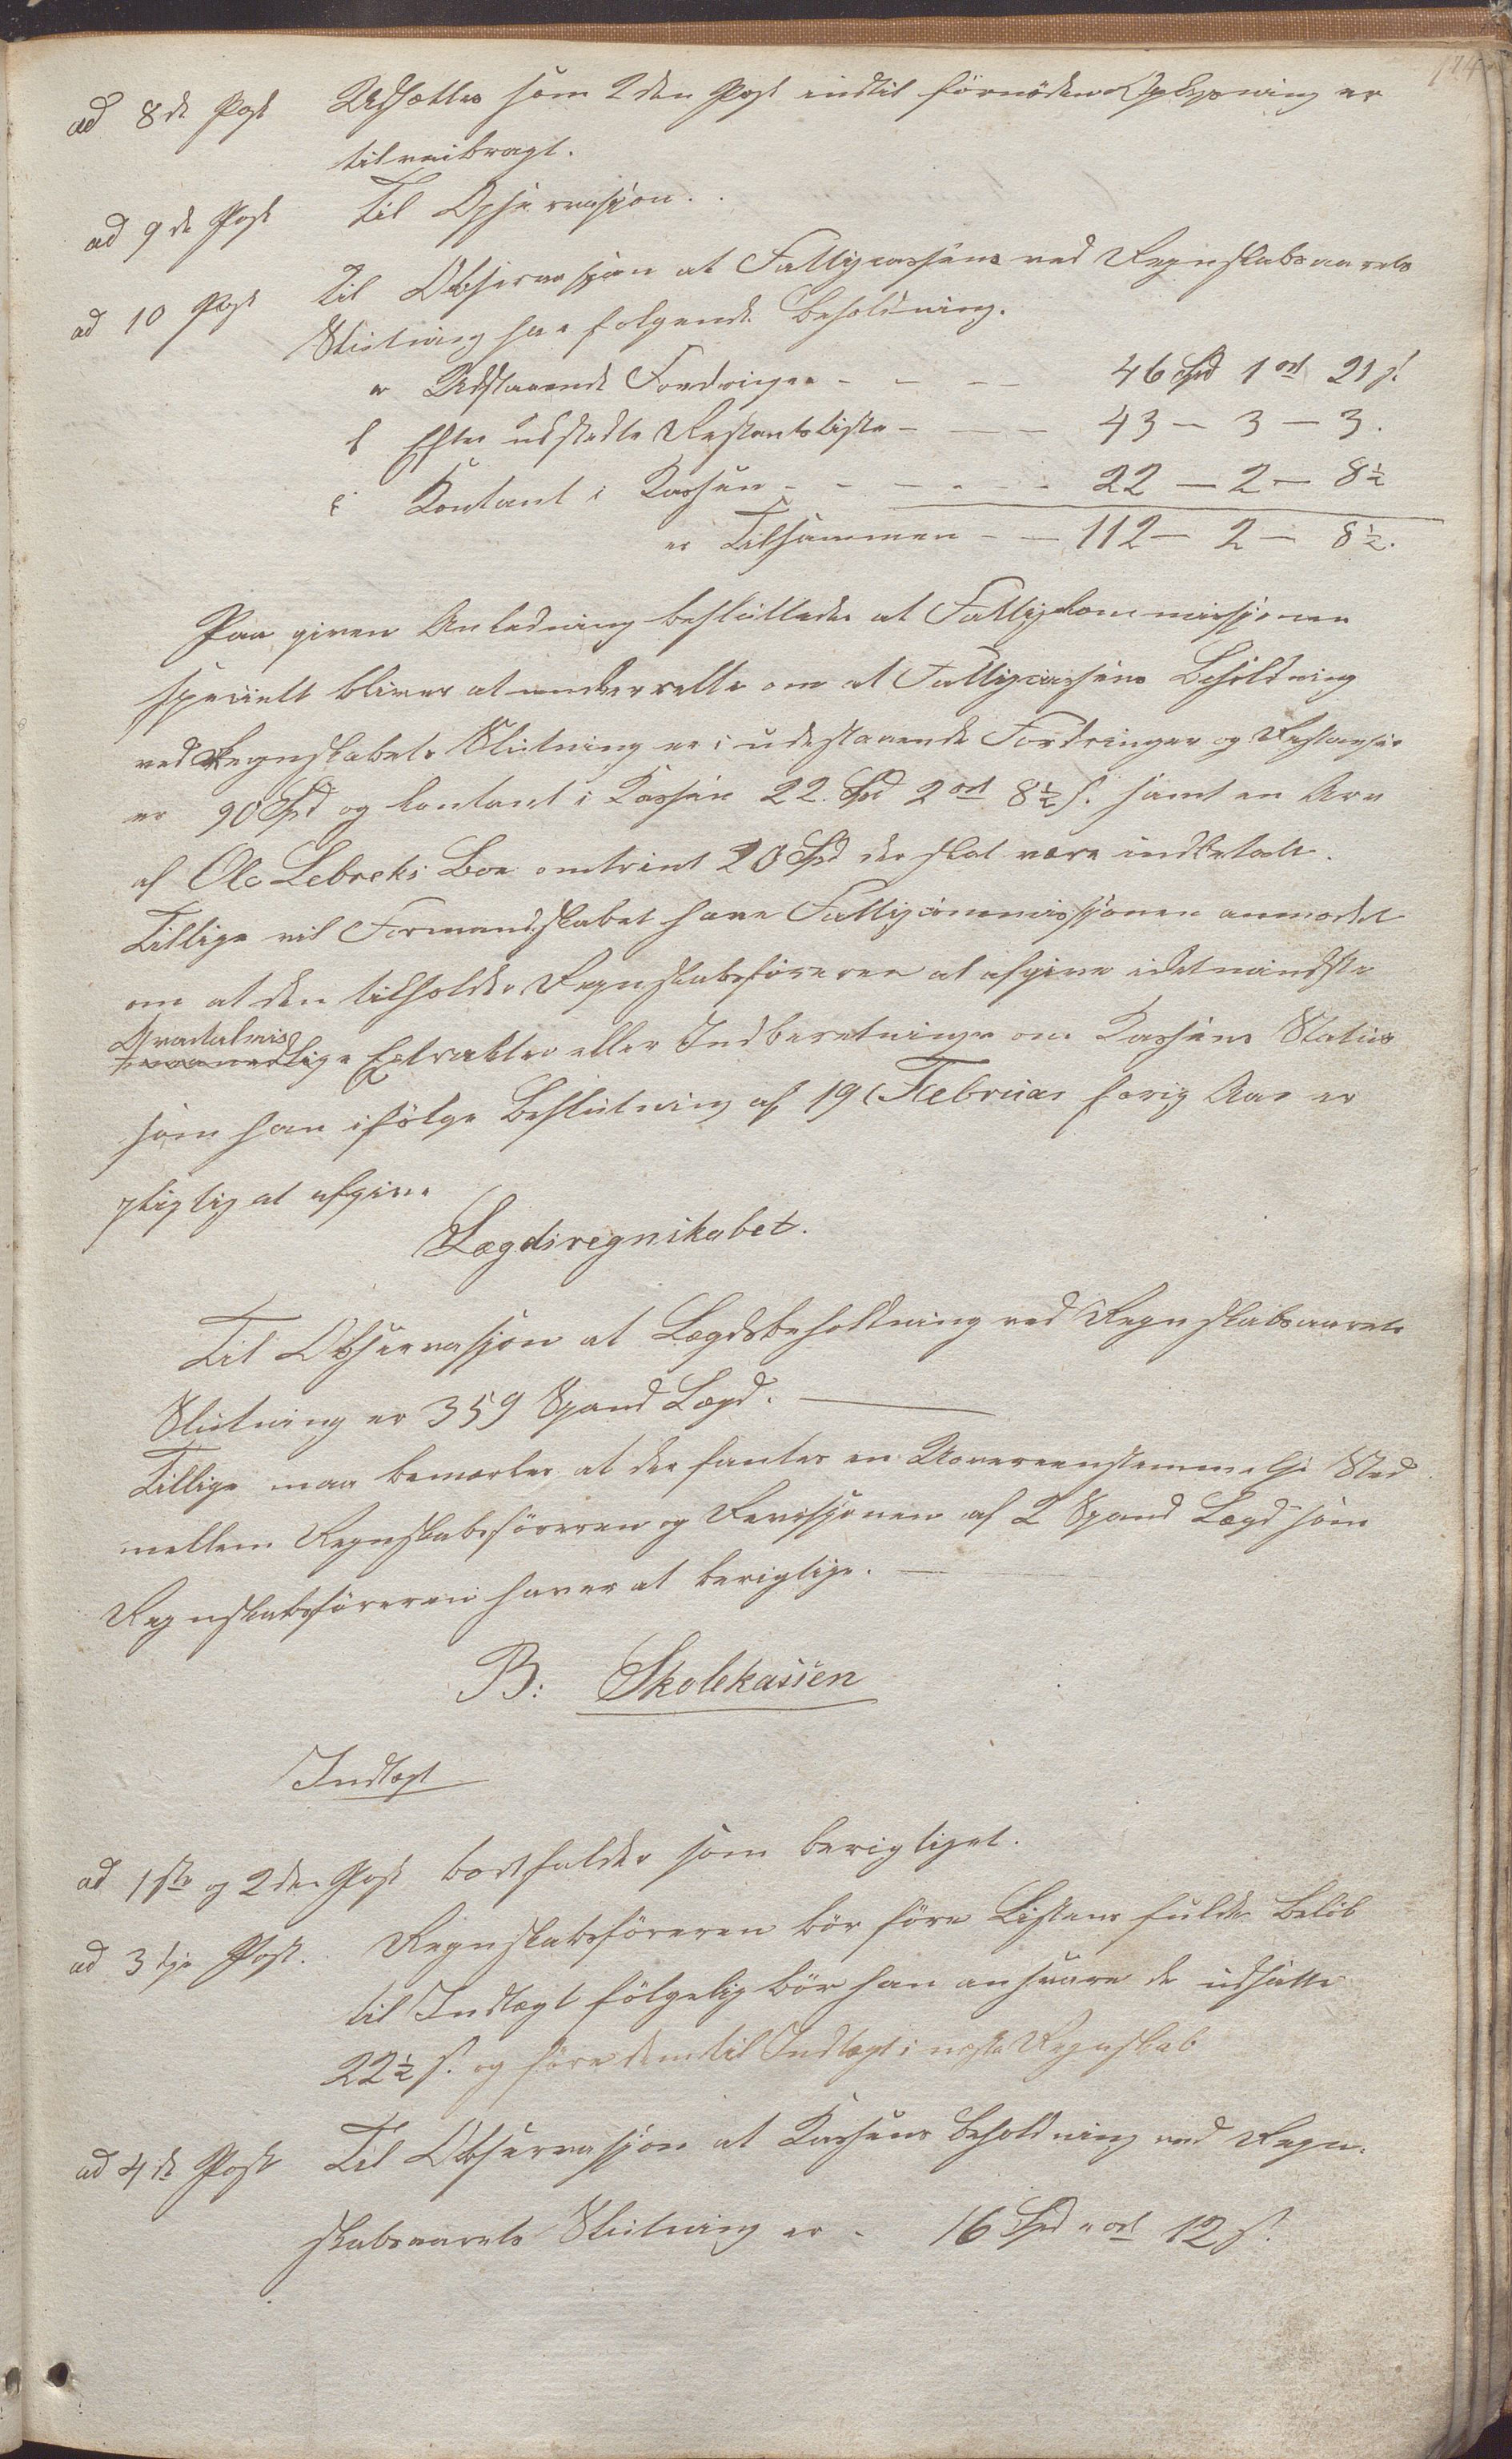 174
ad 8de Post Udsættes som 2den Post indtil fornøden Oplysning er
tilveibragt.
ad 9de Post Til Opservasjon.
ad 10 Post Til Observasjon at Fattigcassens ved Regnskabsaarets
Slutning har følgende Beholdning.
a Udstaaende Fordringer - - - 46 Spd 1 ort 21 s.
b Efter udstedte Restantsliste - - - 43 - 3 - 3.
c Kontant i Kassen - - - - - - 22 - 2 - 8½
er Tilsammen - - 112 - 2 - 8½.
Paa given Anledning besluttedes at Fattigkommissjonen
specielt bliver at underrette om at Fattigcassens Beholdning
ved Regnskabets Slutning er i udestaaende Fordringer og Restanser
er 90 Spd og contant i Kassen 22. Spd 2 ort 8½ s. samt en Arv
af Ole Lebreks Boe omtrent 20 Spd der skal være indbetalt.
Tillige vil Formandskabet have Fattigcommissjonen anmodet
om at den tilholder Regnskabsføreren at afgive idetmindste
Qvartalvis
maanedlige Extrakter eller Indberetninger om Kassens Status
som han ifølge Beslutning af 19 Februar forrig Aar er
pligtig at afgive
Lægdsregnskabet.
Til Observasjon at Lægdsbeholdning ved Regnskabsaarets
Slutning er 359 Spand Lægd.
Tillige maa bemærkes at der fantes en Uovereenstemmelse Sted
mellem Regnskabsføreren og Revisjonen af 2 Spand Lægd som
Regnskabsføreren haver at berigtige.
B: Skolekassen
Indtægt
ad 1ste og 2den Post bortfalder som berigtiget.
ad 3die Post. Regnskabsføreren bør føre Listens fulde Beløb
til Indtægt følgelig bør han ansvare de udsatte
22½ s. og føre dem til Indtægt i næste Regnskab
ad 4de Post Til Observasjon at Kassens Beholdning ved Regn-
skabsaarets Slutning er - 16 Spd " ort 12 s.